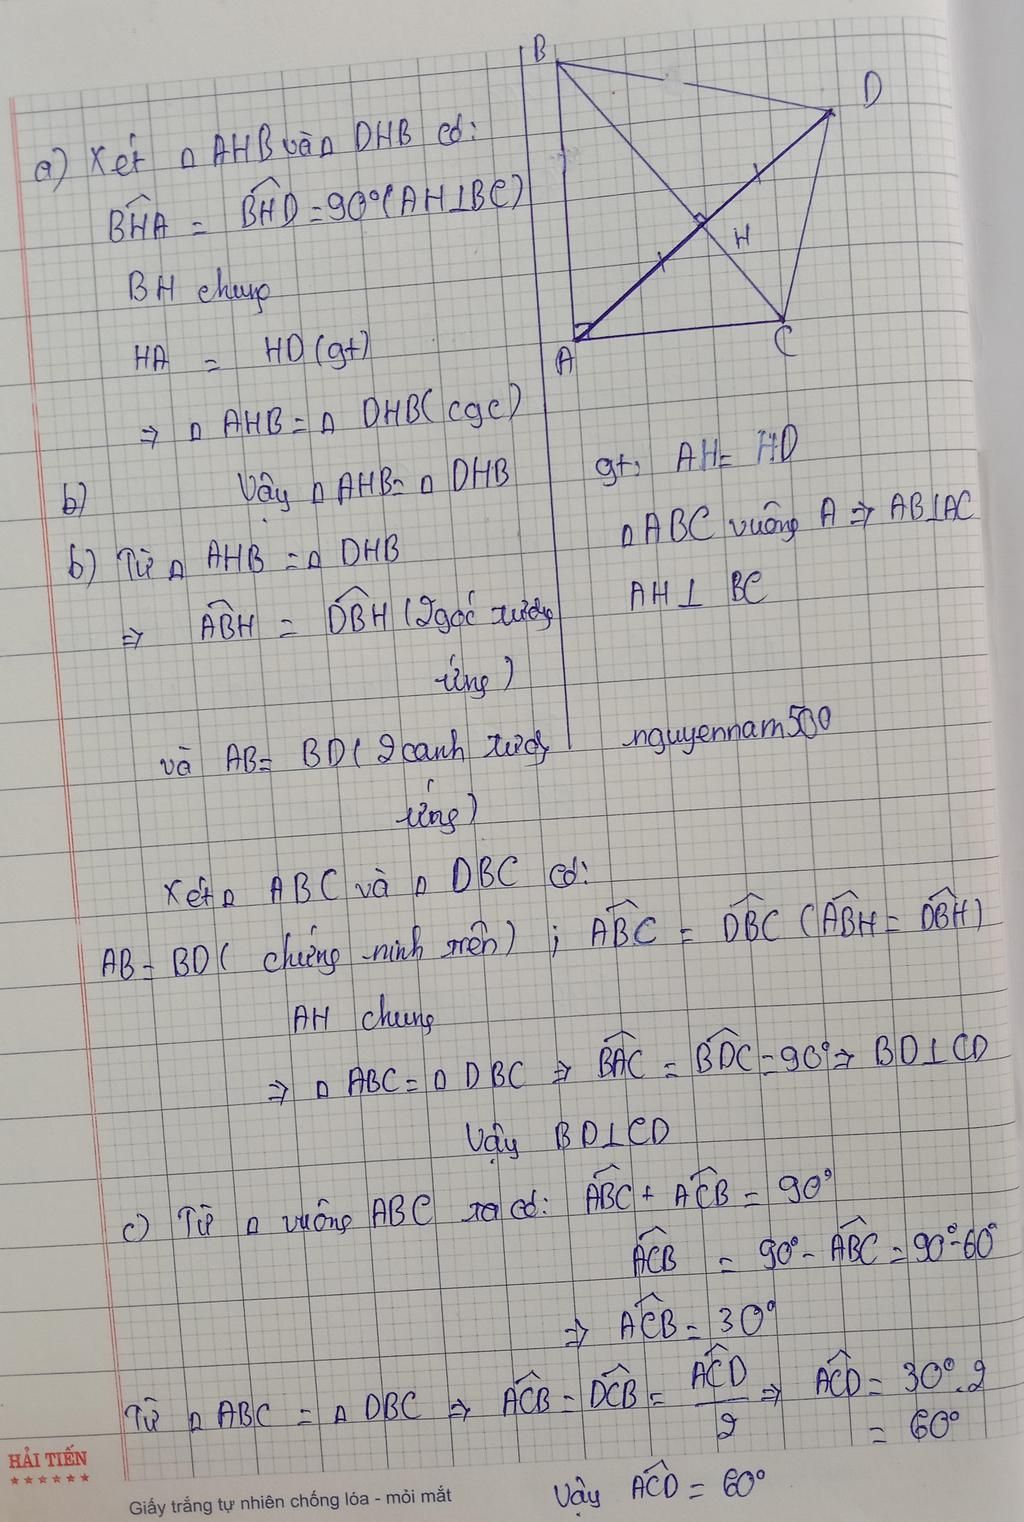 B
D
H
A
C
a) Xét Δ AHB và Δ DHB có:
B̂HA = B̂HD = 90° (AH⊥BC)
BH chung
HA = HD (gt)
⇒ Δ AHB = Δ DHB (cgc)
Vậy Δ AHB = Δ DHB
b)
b) Từ Δ AHB = Δ DHB
⇒ ABH̑ = DBH̑ (2 góc tương
ứng)
và AB = BD (2 cạnh tương
ứng)
gt: AH = HD
Δ ABC vuông A ⇒ AB⊥AC
AH ⊥ BC
nguyennam500
Xét Δ ABC và Δ DBC có:
AB = BD ( chứng minh trên) ; AB̂C = DB̂C (AB̂H = DB̂H)
AH chung
⇒ Δ ABC = Δ DBC ⇒ BÂC = BD̂C = 90° ⇒ BD⊥CD
Vậy BD⊥CD
c) Từ Δ vuông ABC ta có: AB̂C + AĈB = 90°
AĈB = 90° - AB̂C = 90° - 60°
⇒ AĈB = 30°
Từ Δ ABC = Δ DBC ⇒ AĈB = DĈB = AĈD / 2 ⇒ AĈD = 30°.2
= 60°
Vậy AĈD = 60°
HẢI TIẾN
★★★★★★
Giấy trắng tự nhiên chống lóa - mỏi mắt